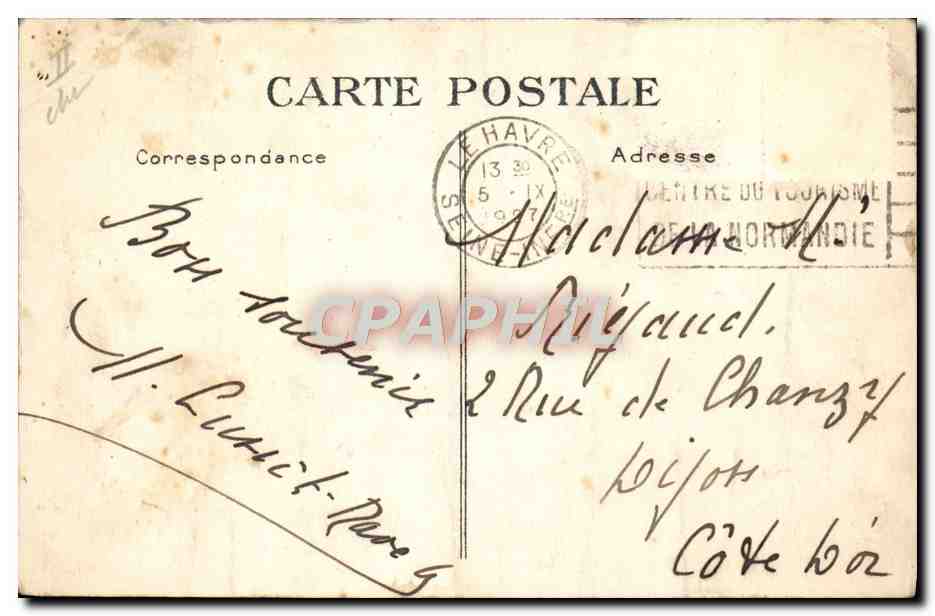 CARTE POSTALE
Correspondance
Adresse
LE HAVRE
13 30
5 - IX
1927
SEINE-INFRE
CENTRE DU TOURISME
DE LA NORMANDIE
Bon souvenir
M.
Madame M.
Rigaud.
2 Rue de Chanzy
Dijon
Côte d'or
CPAPHIL